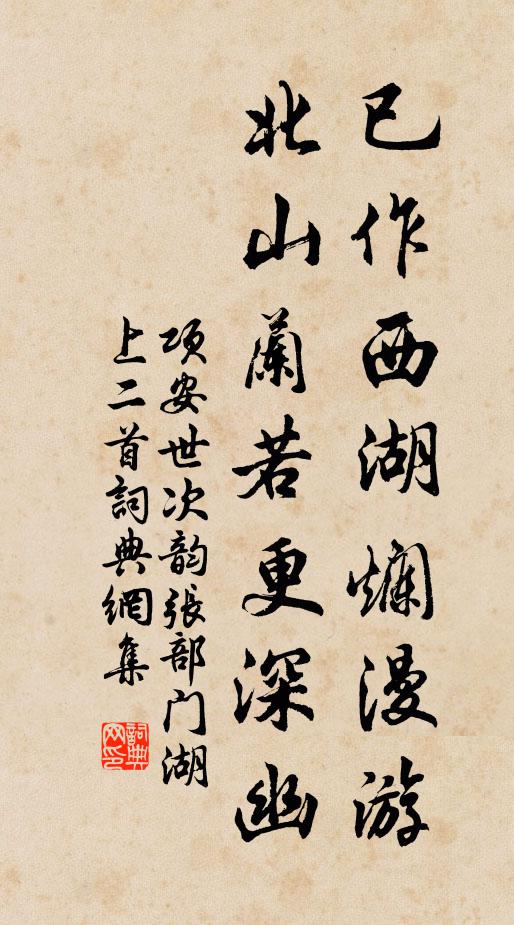 已作西湖爛漫游
北山蘭若更深幽
項安世次韵張部門湖
上二首詞典網集
詞典
网印